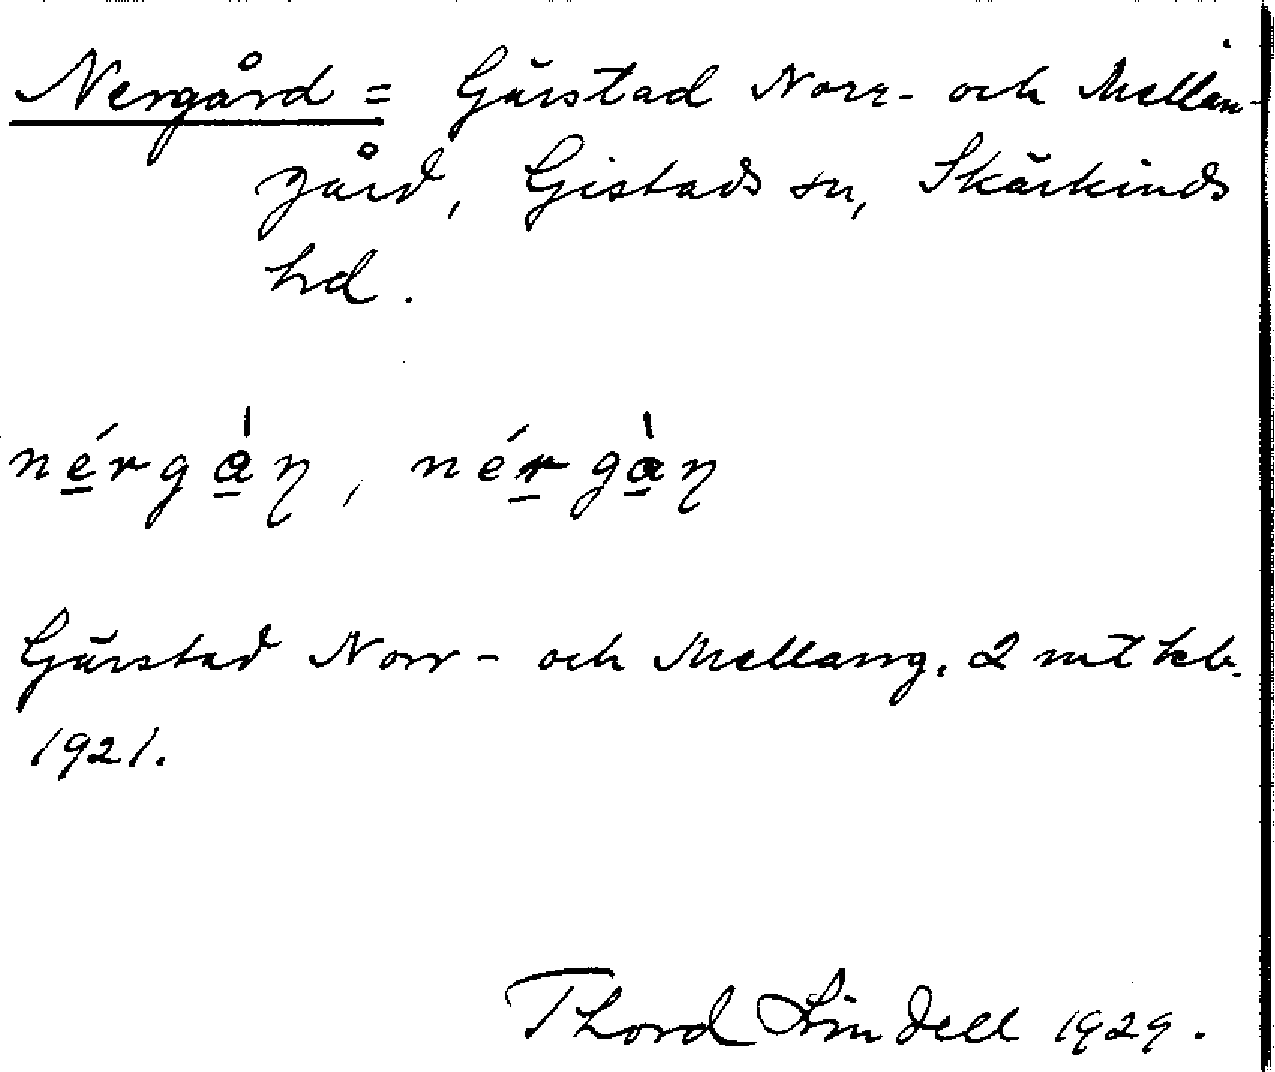 Nergård = Gärstad Norr- och Mellan-
gård, Gistads sn, Skärkinds
hd.
nérgàn, nérgàn
Gärstad Norr- och Mellang. 2 mt kb.
1921.
Thord Lindell 1929.